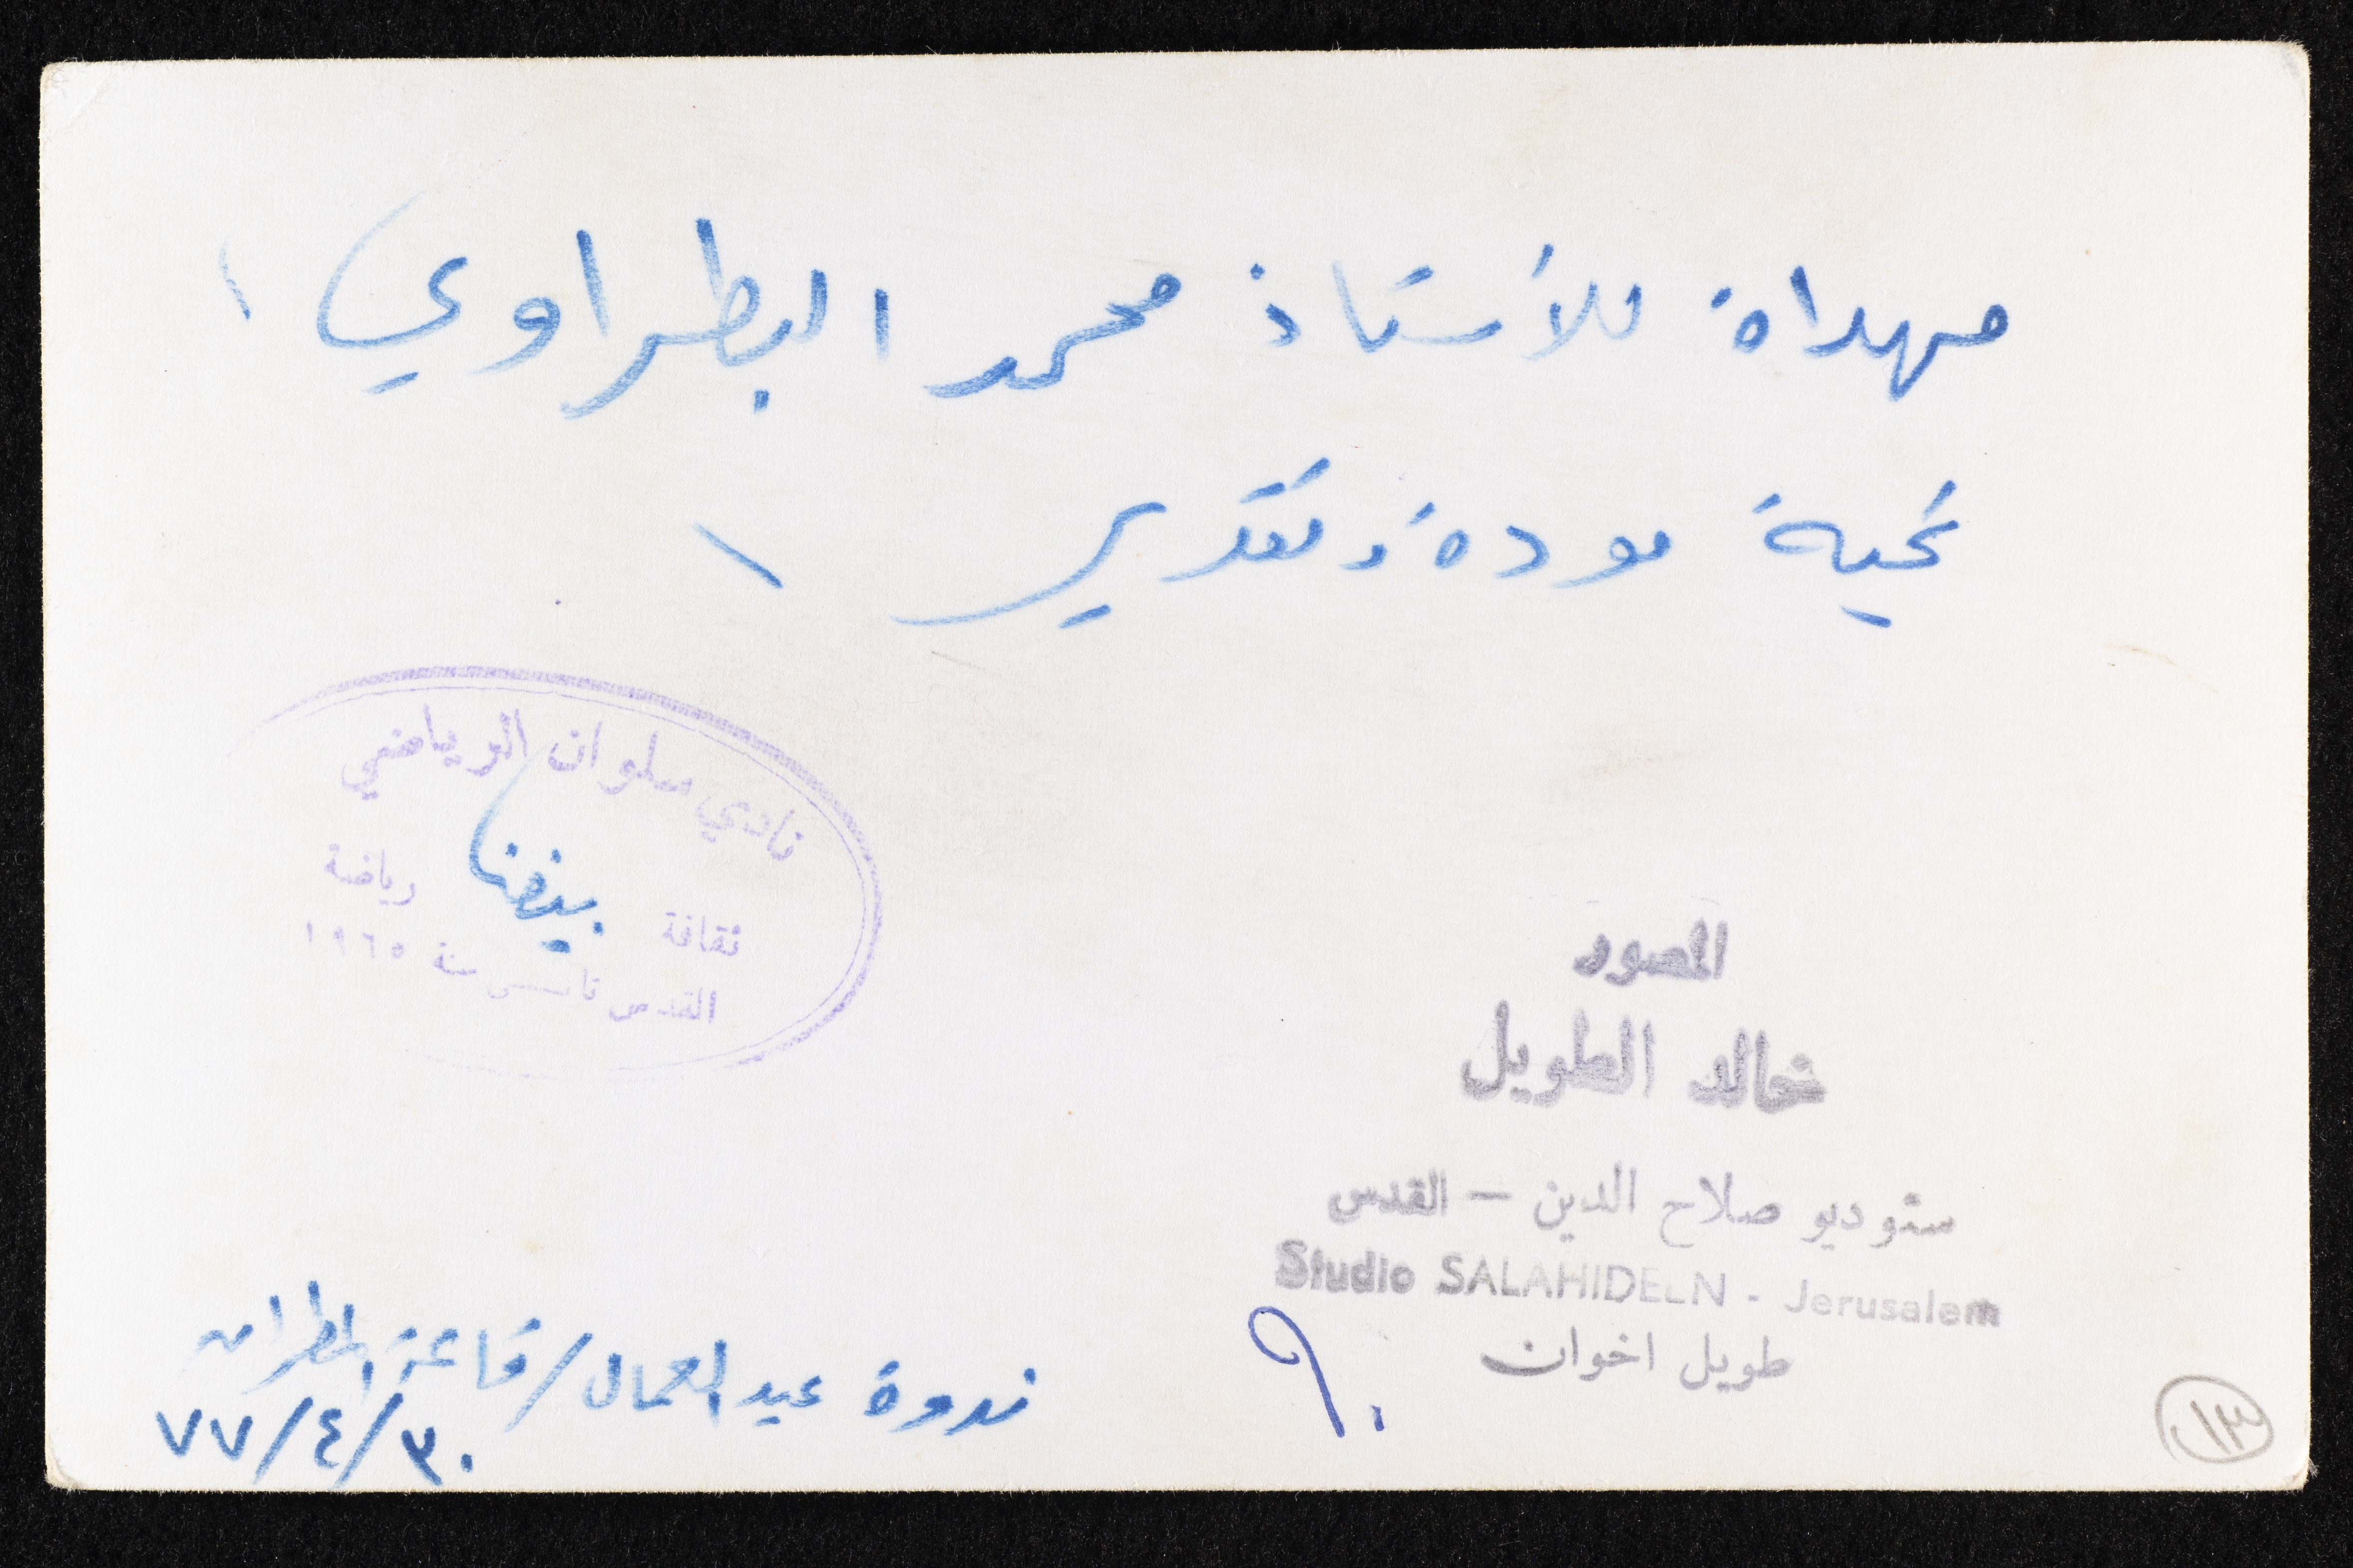 مهداة للأستاذ محمد البطراوي /
تحية مودة وتقدير /
نادي سلوان الرياضي
ثقافة رياضة
القدس تأسس سنة ١٩٦٥
المصور
خالد الطويل
ستوديو صلاح الدين — القدس
Studio SALAHIDEEN - Jerusalem
طويل اخوان
٩٠
ندوة عيد العمال / قاعة المطران
٧٧/٤/٣٠